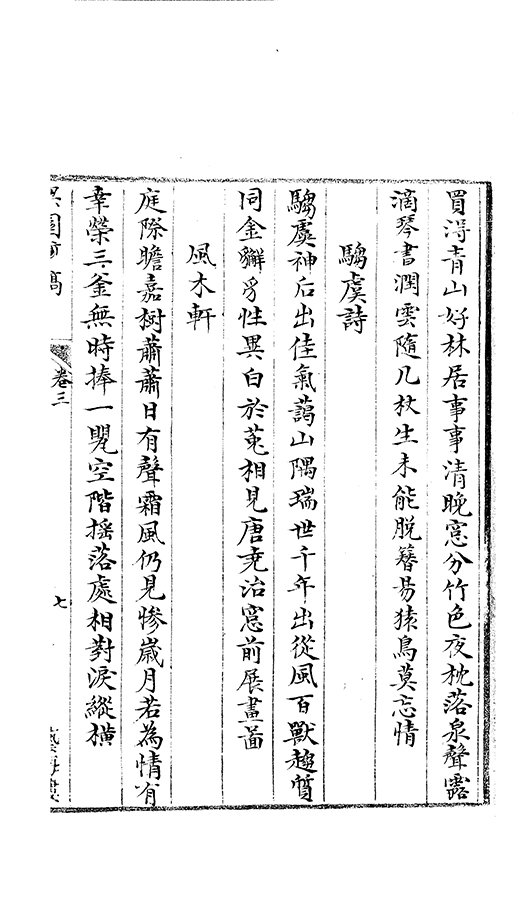 買淂青山好林居事事清晚窓分竹色夜枕落泉聲露
滴琴書潤雲隨几杖生未能脫簪昜猿鳥莫忘情
騶虞詩
騶虞神后出佳氣藹山隅瑞世千年出從風百獸趨質
同金獬豸性異白於菟相見唐尭治窓前展畫啚
風木軒
庭際瞻嘉樹蕭蕭日有聲霜風仍見慘歳月若為情有
幸榮三釜無時捧一觥空階揺落處相對淚縱橫
卷三
七